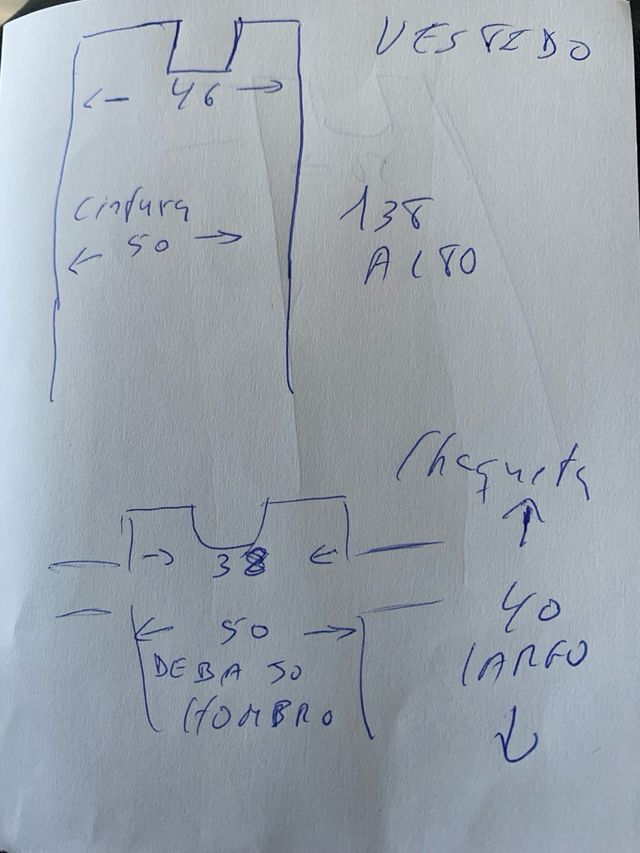 VESTIDO
46
Cintura
50
138
ALTO
Chaqueta
38
50
DEBAJO
HOMBRO
40
LARGO